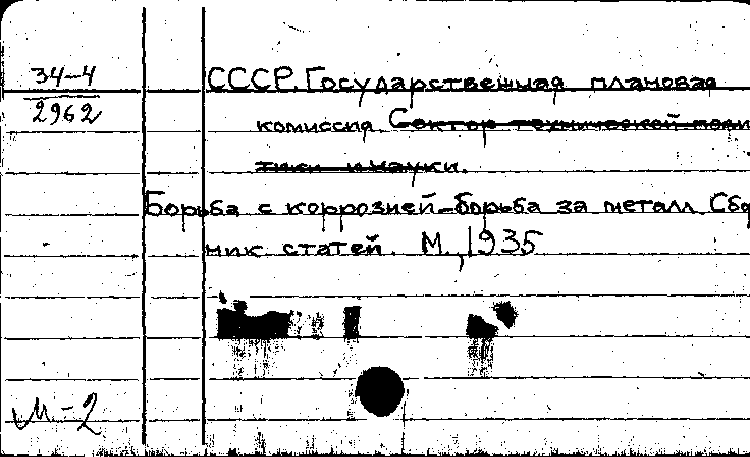 34-4
2962
СССР. Государственная плановая
комиссия. Сектор технической поли
тики и науки.
Борьба с коррозией-борьба за металл. Сбор
ник статей. М., 1935
М-2